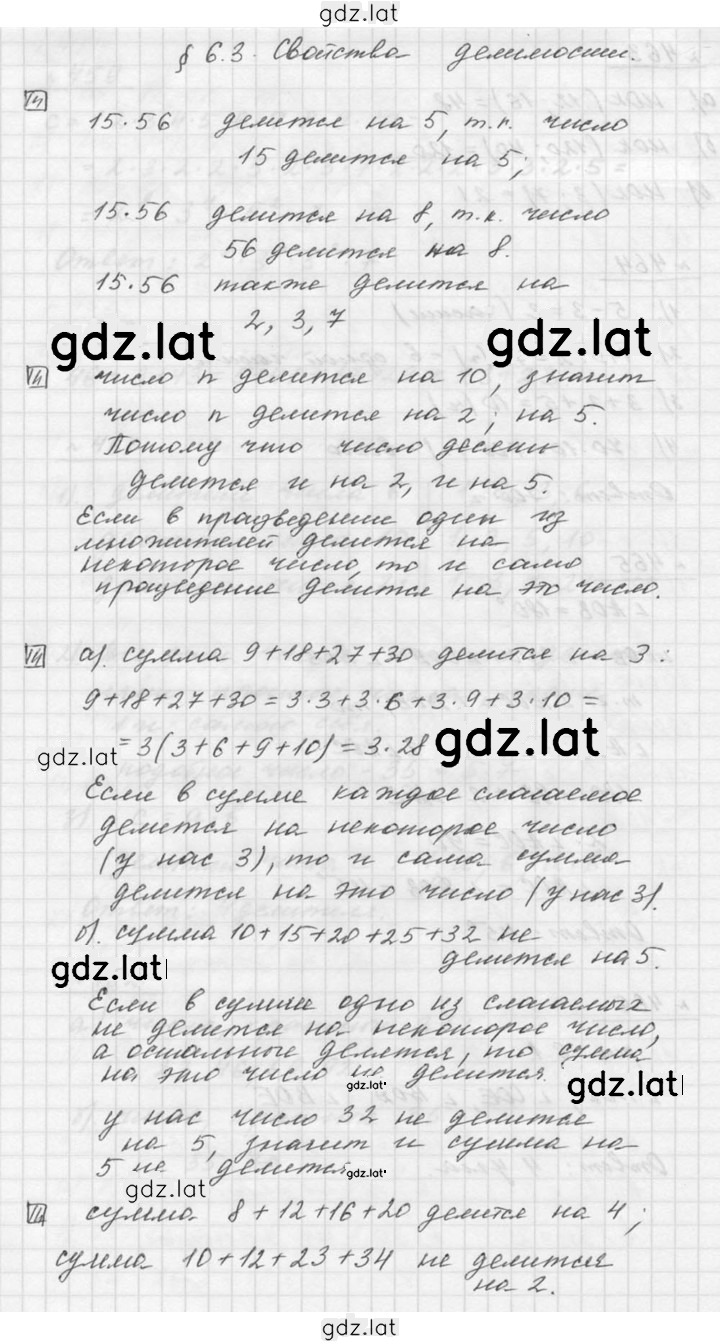 gdz.lat
§ 6.3. Свойства делимости.
15·56 делится на 5, т.к. число
15 делится на 5;
15·56 делится на 8, т.к. число
56 делится на 8.
15·56 также делится на
2, 3, 7
gdz.lat
gdz.lat
число n делится на 10, значит
число n делится на 2, на 5.
Потому что число десять
делится и на 2, и на 5.
Если в произведении один из
множителей делится на
некоторое число, то и само
произведение делится на это число.
а). сумма 9+18+27+30 делится на 3:
9+18+27+30 = 3·3+3·6+3·9+3·10 =
= 3(3+6+9+10) = 3·28
gdz.lat
gdz.lat
Если в сумме каждое слагаемое
делится на некоторое число
(у нас 3), то и сама сумма
делится на это число (у нас 3).
б). сумма 10+15+20+25+32 не
делится на 5.
gdz.lat
Если в сумме одно из слагаемых
не делится на некоторое число,
а остальные делятся, то сумма
на это число не делится.
gdz.lat
gdz.lat
у нас число 32 не делится
на 5, значит и сумма на
5 не делится.
gdz.lat
gdz.lat
сумма 8+12+16+20 делится на 4;
сумма 10+12+23+34 не делится
на 2.
gdz.lat